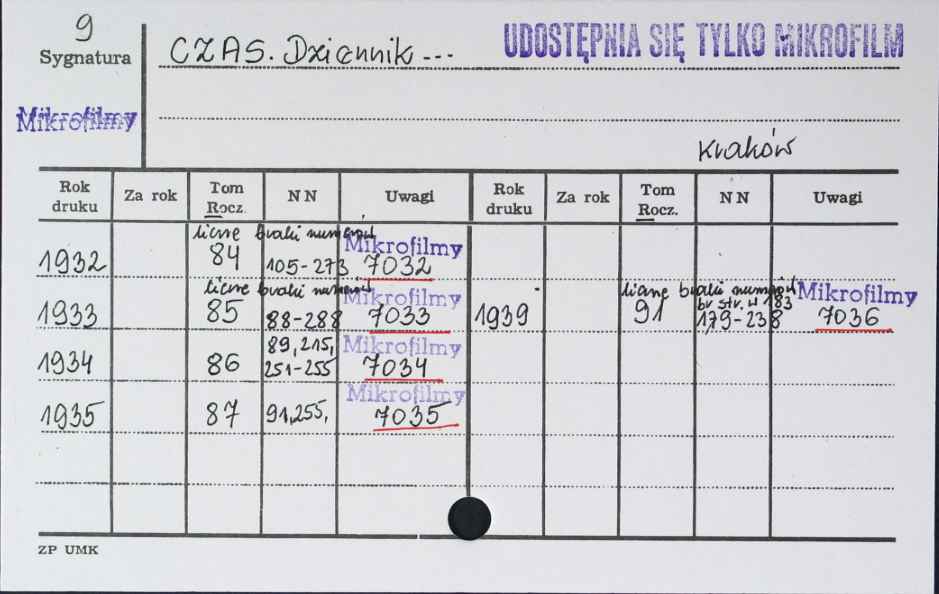 9
Sygnatura
CZAS. Dziennik ---
UDOSTĘPNIA SIĘ TYLKO MIKROFILM
Mikrofilmy
Mikrofilmy
Kraków
Rok druku Za rok Tom Rocz. NN Uwagi Rok druku Za rok Tom Rocz. NN Uwagi
liczne braki numerów
1932 84 105-273 Mikrofilmy 7032
liczne braki numerów
1933 85 88-288 Mikrofilmy 7033
1934 86 89, 215, 251-255 Mikrofilmy 7034
1935 87 91, 255, Mikrofilmy 7035
liczne braki numerów
br str. w 183
1939 91 179-238 Mikrofilmy 7036
ZP UMK